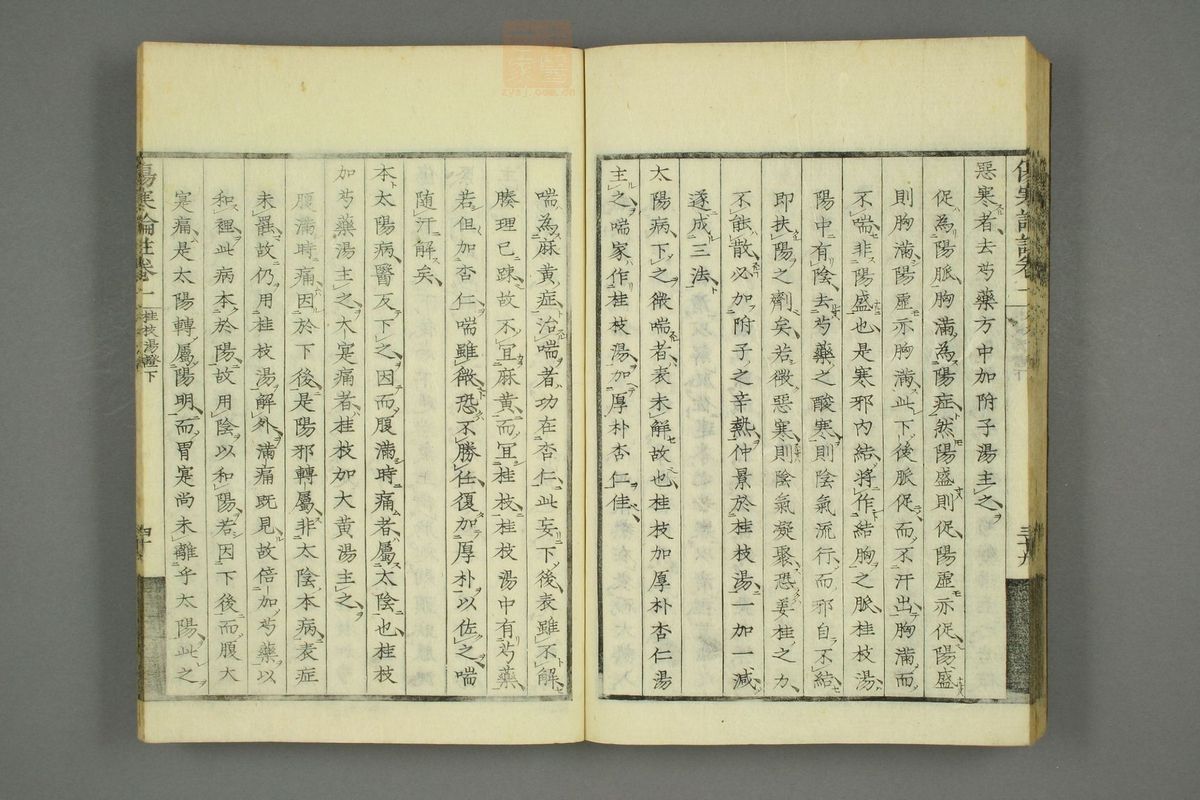 惡寒者去芍藥方中加附子湯主之
促為陽脈胸滿為陽症然陽盛則促陽虛亦促陽盛
則胸滿陽虛亦胸滿此下後脈促而不汗出胸滿而
不喘非陽盛也是寒邪內結將作結胸之脈桂枝湯
陽中有陰去芍藥之酸寒則陰氣流行而邪自不結
即扶陽之劑矣若微惡寒則陰氣凝聚恐姜桂之力
不能散必加附子之辛熱仲景於桂枝湯一加一減
遂成三法
太陽病下之微喘者表未解故也桂枝加厚朴杏仁湯
主之喘家作桂枝湯加厚朴杏仁佳
喘為麻黃症治喘者功在杏仁此妄下後表雖不解
腠理已疎故不冝麻黃而冝桂枝桂枝湯中有芍藥
若但加杏仁喘雖微恐不勝任復加厚朴以佐之喘
隨汗解矣
本太陽病醫反下之因而腹滿時痛者屬太陰也桂枝
加芍藥湯主之大寔痛者桂枝加大黃湯主之
腹滿時痛因於下後是陽邪轉屬非太陰本病表症
未罷故仍用桂枝湯解外滿痛既見故倍加芍藥以
和裡此病本於陽故用陰以和陽若因下後而腹大
寔痛是太陽轉屬陽明而胃寔尚未離乎太陽此之
傷寒論註卷一
桂枝湯證下